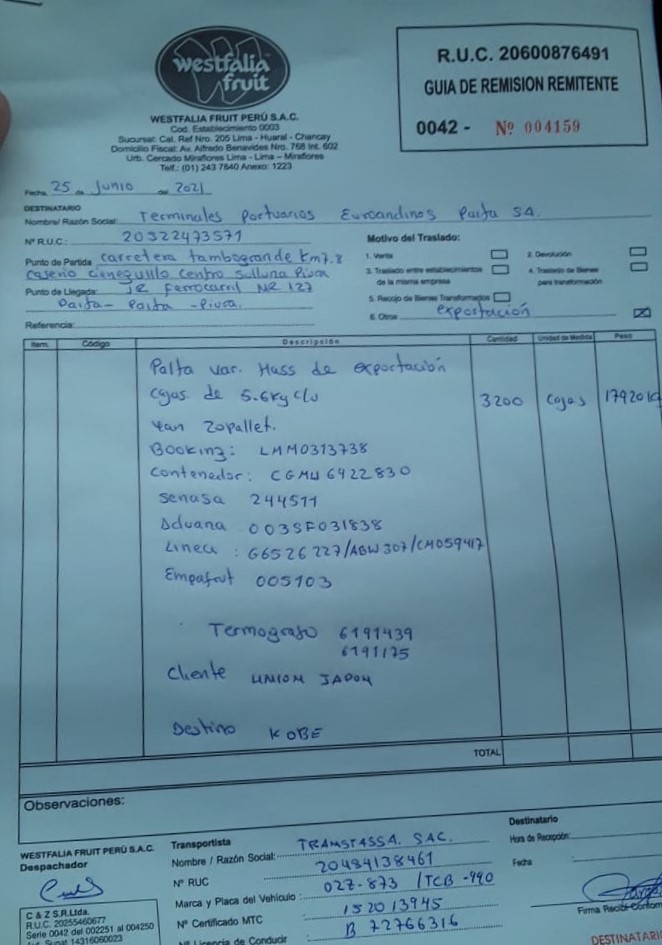 westfalia
fruit
WESTFALIA FRUIT PERÚ S.A.C.
Cod. Establecimiento 0003
Sucursal: Cal. Ref Nro. 205 Lima - Huaral - Chancay
Domicilio Fiscal: Av. Alfredo Benavides Nro. 768 Int. 602
Urb. Cercado Miraflores Lima - Lima - Miraflores
Telf.: (01) 243 7640 Anexo: 1223
R.U.C. 20600876491
GUIA DE REMISION REMITENTE
0042 - Nº 004159
Fecha, 25 de Junio del 2021
DESTINATARIO
Nombre/ Razón Social: Terminales Portuarios Euroandinos Paita SA.
Nº R.U.C.: 20522473571
Punto de Partida carretera tambogrande Km7.8
caserio cieneguillo Centro Sullana Piura
Punto de Llegada: JR ferrocarril NR 127
Paita - Paita - Piura.
Referencia:
Motivo del Traslado:
1. Venta
2. Devolución
3. Traslado entre establecimientos de la misma empresa
4. Traslado de Bienes para transformación
5. Recojo de Bienes Transformados
6. Otros exportación
Item. Código Descripción Cantidad Unidad de Medida Peso
Palta var. Hass de exportación
Cajas de 5.6Kg c/u 3200 Cajas 17920
van 20 pallet.
Booking: LMM0313738
Contenedor: CGMU 6422830
Senasa 244511
Aduana 003SF031838
Linea : G6526227/ABW307/CM059417
Empafrut 005103
Termografo 6191439
6191175
Cliente UNION JAPON
Destino KOBE
TOTAL
Observaciones:
WESTFALIA FRUIT PERÚ S.A.C.
Despachador
C & Z S.R.Ltda.
R.U.C. 20255460677
Serie 0042 del 002251 al 004250
Aut. Sunat 14316060023
Transportista
Nombre / Razón Social: TRANSTASSA. SAC.
Nº RUC 20484138461
Marca y Placa del Vehículo : 027-873 /TCB-990
Nº Certificado MTC 152013945
Nº Licencia de Conducir B 72766316
Destinatario
Hora de Recepción:
Fecha
Firma Recibí Conforme
DESTINATARIO